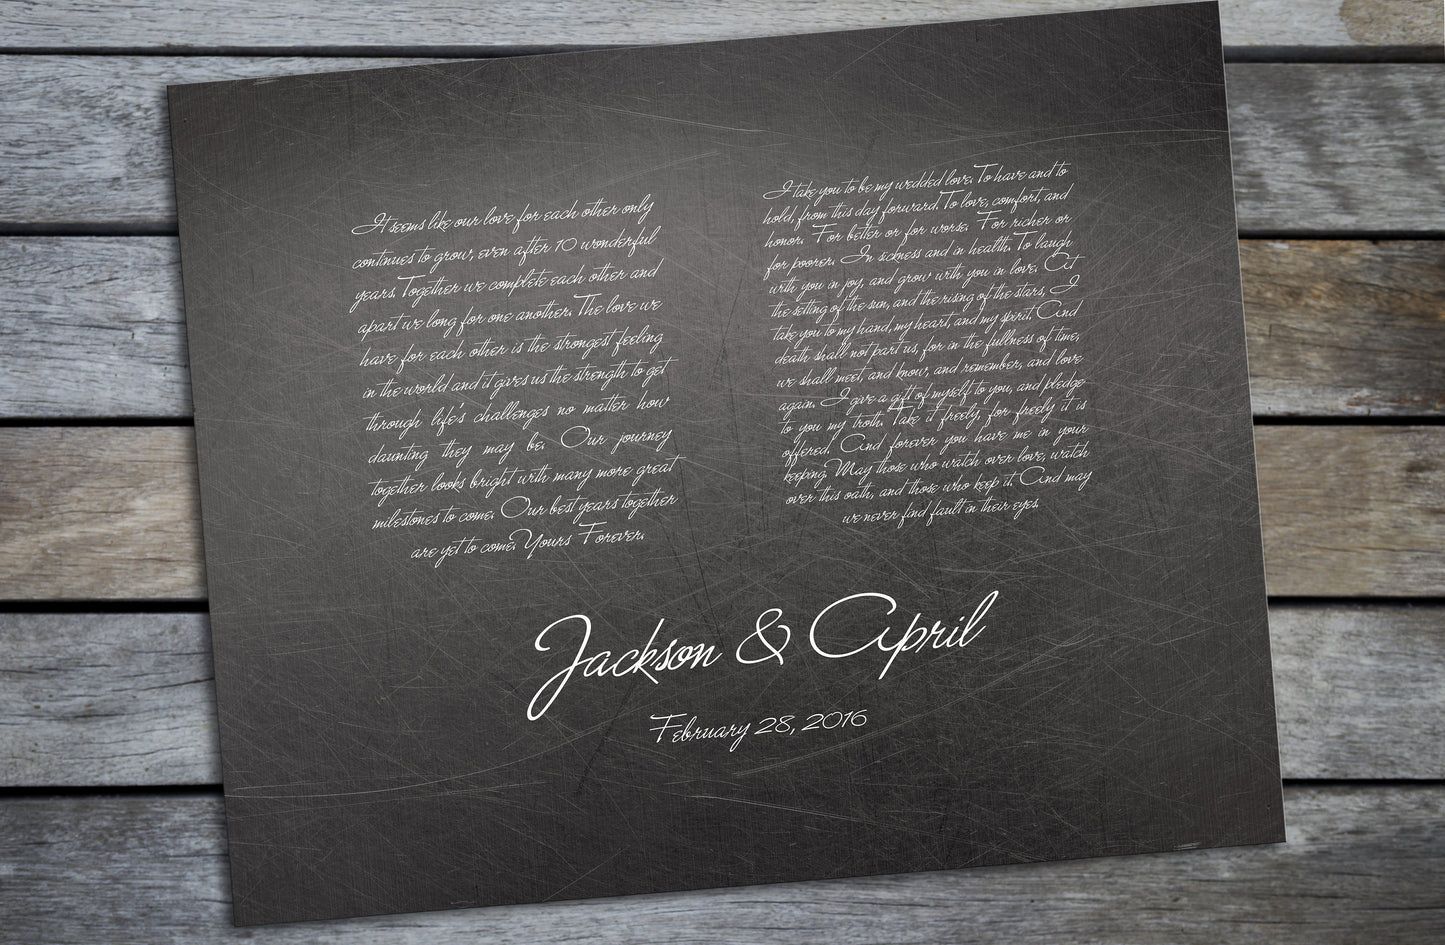 It seems like our love for each other only
continues to grow, even after 10 wonderful
years. Together we complete each other and
apart we long for one another. The love we
have for each other is the strongest feeling
in the world and it gives us the strength to get
through life's challenges no matter how
daunting they may be. Our journey
together looks bright with many more great
milestones to come. Our best years together
are yet to come. Yours Forever.
I take you to be my wedded love. To have and to
hold, from this day forward. To love, comfort, and
honor. For better or for worse. For richer or
for poorer. In sickness and in health. To laugh
with you in joy, and grow with you in love. At
the setting of the sun, and the rising of the stars, I
take you to my hand, my heart, and my spirit. And
death shall not part us, for in the fullness of time,
we shall meet, and know, and remember, and love
again. I give a gift of myself to you, and pledge
to you my troth. Take it freely, for freely it is
offered. And forever you have me in your
keeping. May those who watch over love, watch
over this oath, and those who keep it. And may
we never find fault in their eyes.
Jackson & April
February 28, 2016